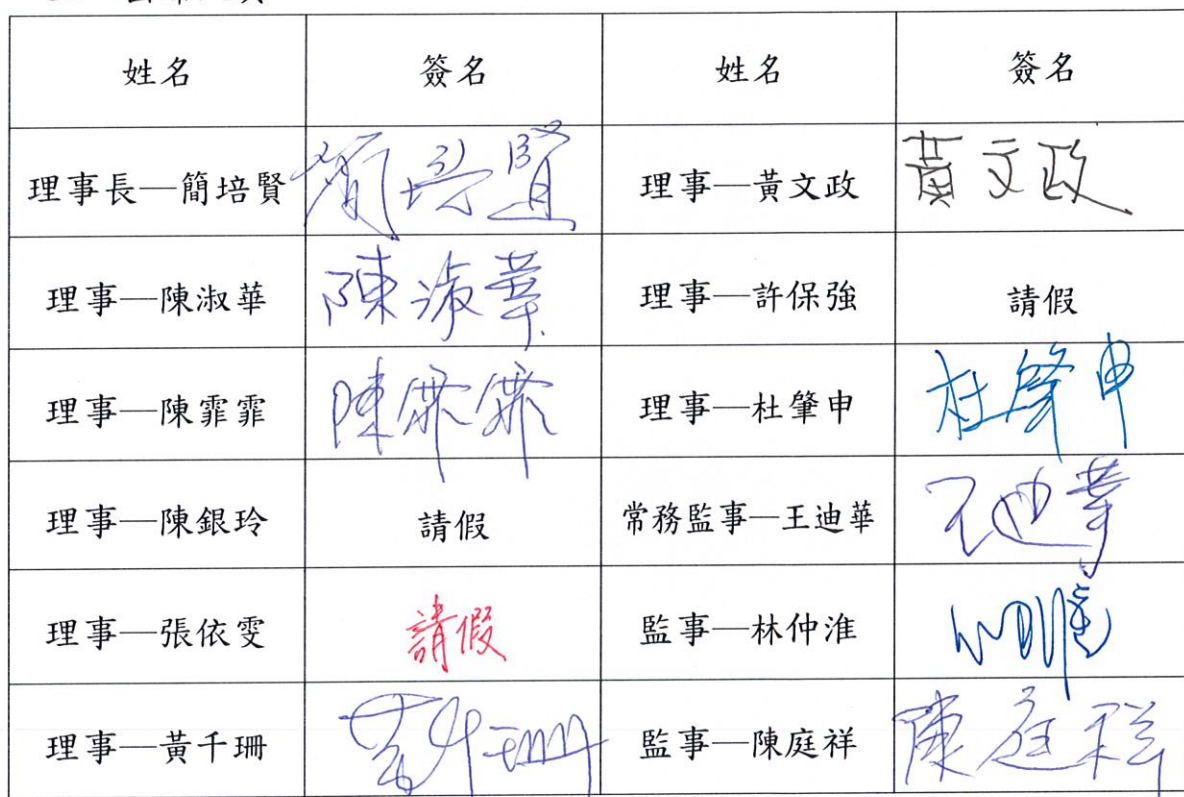 姓名 簽名 姓名 簽名
理事長—簡培賢 簡培賢 理事—黃文政 黃文政
理事—陳淑華 陳淑華 理事—許保強 請假
理事—陳霏霏 陳霏霏 理事—杜肇申 杜肇申
理事—陳銀玲 請假 常務監事—王迪華 王迪華
理事—張依雯 請假 監事—林仲淮
理事—黃千珊 黃千珊 監事—陳庭祥 陳庭祥